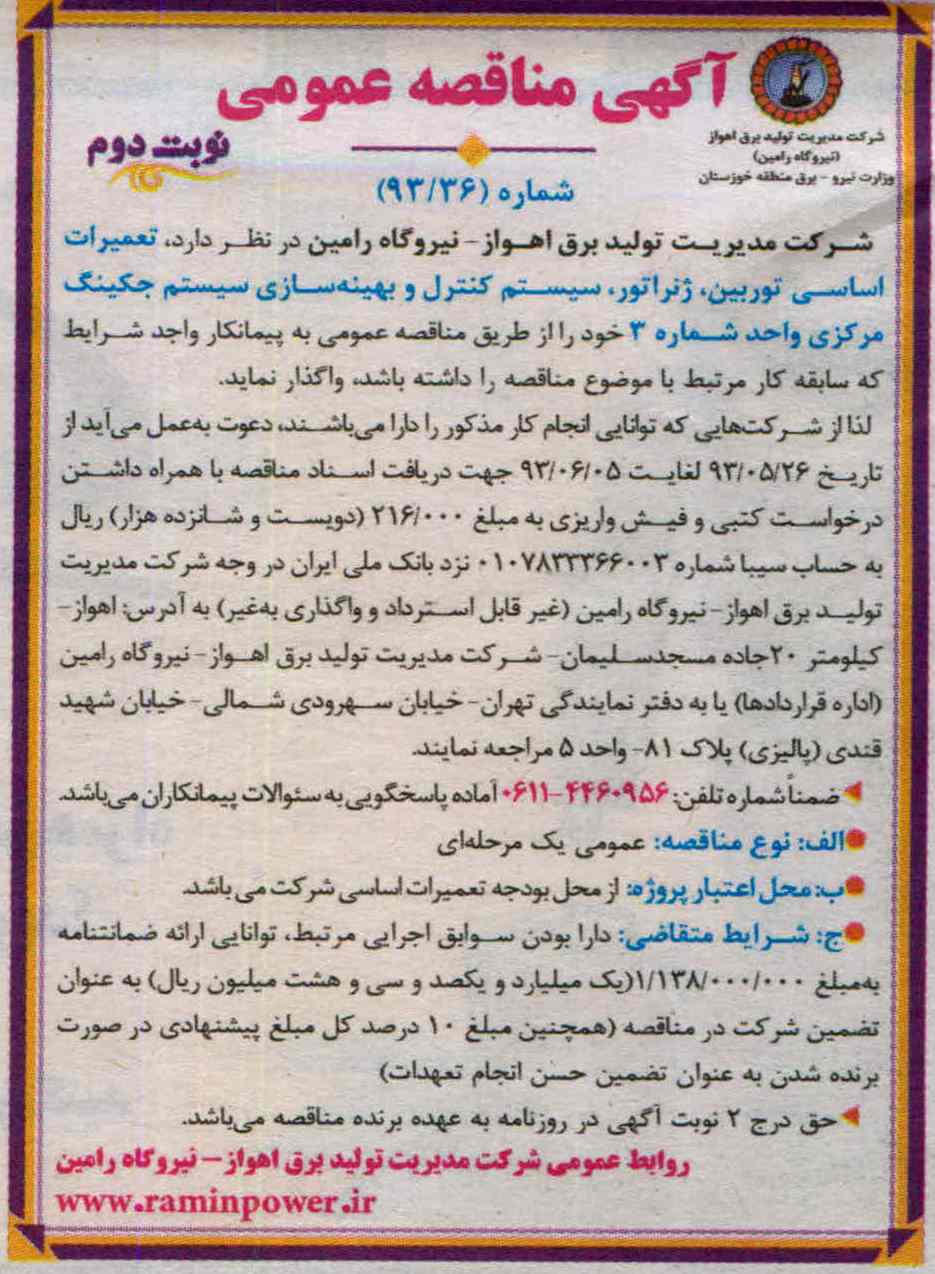 آگهی مناقصه عمومی
شرکت مدیریت تولید برق اهواز
(نیروگاه رامین)
وزارت نیرو - برق منطقه خوزستان
نوبت دوم
شماره (۹۳/۳۶)
شرکت مدیریت تولید برق اهواز- نیروگاه رامین در نظر دارد، تعمیرات
اساسی توربین، ژنراتور، سیستم کنترل و بهینه‌سازی سیستم جکینگ
مرکزی واحد شماره ۳ خود را از طریق مناقصه عمومی به پیمانکار واجد شرایط
که سابقه کار مرتبط با موضوع مناقصه را داشته باشد، واگذار نماید.
لذا از شرکت‌هایی که توانایی انجام کار مذکور را دارا می‌باشند، دعوت به‌عمل می‌آید از
تاریخ ۹۳/۰۵/۲۶ لغایت ۹۳/۰۶/۰۵ جهت دریافت اسناد مناقصه با همراه داشتن
درخواست کتبی و فیش واریزی به مبلغ ۲۱۶/۰۰۰ (دویست و شانزده هزار) ریال
به حساب سیبا شماره ۰۱۰۷۸۳۳۳۶۶۰۰۳ نزد بانک ملی ایران در وجه شرکت مدیریت
تولید برق اهواز- نیروگاه رامین (غیر قابل استرداد و واگذاری به‌غیر) به آدرس: اهواز-
کیلومتر ۲۰جاده مسجدسلیمان- شرکت مدیریت تولید برق اهواز- نیروگاه رامین
(اداره قراردادها) یا به دفتر نمایندگی تهران- خیابان سهرودی شمالی- خیابان شهید
قندی (پالیزی) پلاک ۸۱- واحد ۵ مراجعه نمایند.
ضمناً شماره تلفن: ۴۴۶۰۹۵۶-۰۶۱۱ آماده پاسخگویی به سئوالات پیمانکاران می‌باشد.
الف: نوع مناقصه: عمومی یک مرحله‌ای
ب: محل اعتبار پروژه: از محل بودجه تعمیرات اساسی شرکت می‌باشد.
ج: شرایط متقاضی: دارا بودن سوابق اجرایی مرتبط، توانایی ارائه ضمانتنامه
به‌مبلغ ۱/۱۳۸/۰۰۰/۰۰۰(یک میلیارد و یکصد و سی و هشت میلیون ریال) به عنوان
تضمین شرکت در مناقصه (همچنین مبلغ ۱۰ درصد کل مبلغ پیشنهادی در صورت
برنده شدن به عنوان تضمین حسن انجام تعهدات)
حق درج ۲ نوبت آگهی در روزنامه به عهده برنده مناقصه می‌باشد.
روابط عمومی شرکت مدیریت تولید برق اهواز – نیروگاه رامین
www.raminpower.ir